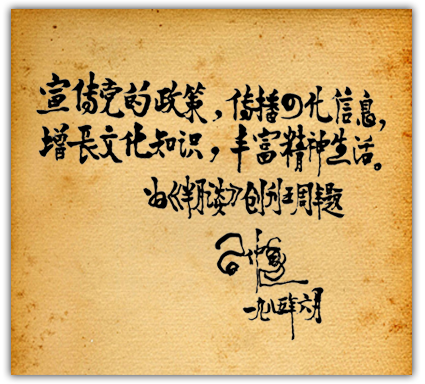 宣传党的政策，传播四化信息，
增長文化知识，丰富精神生活。
为《半月谈》创刊五周年题
一九八五年六月